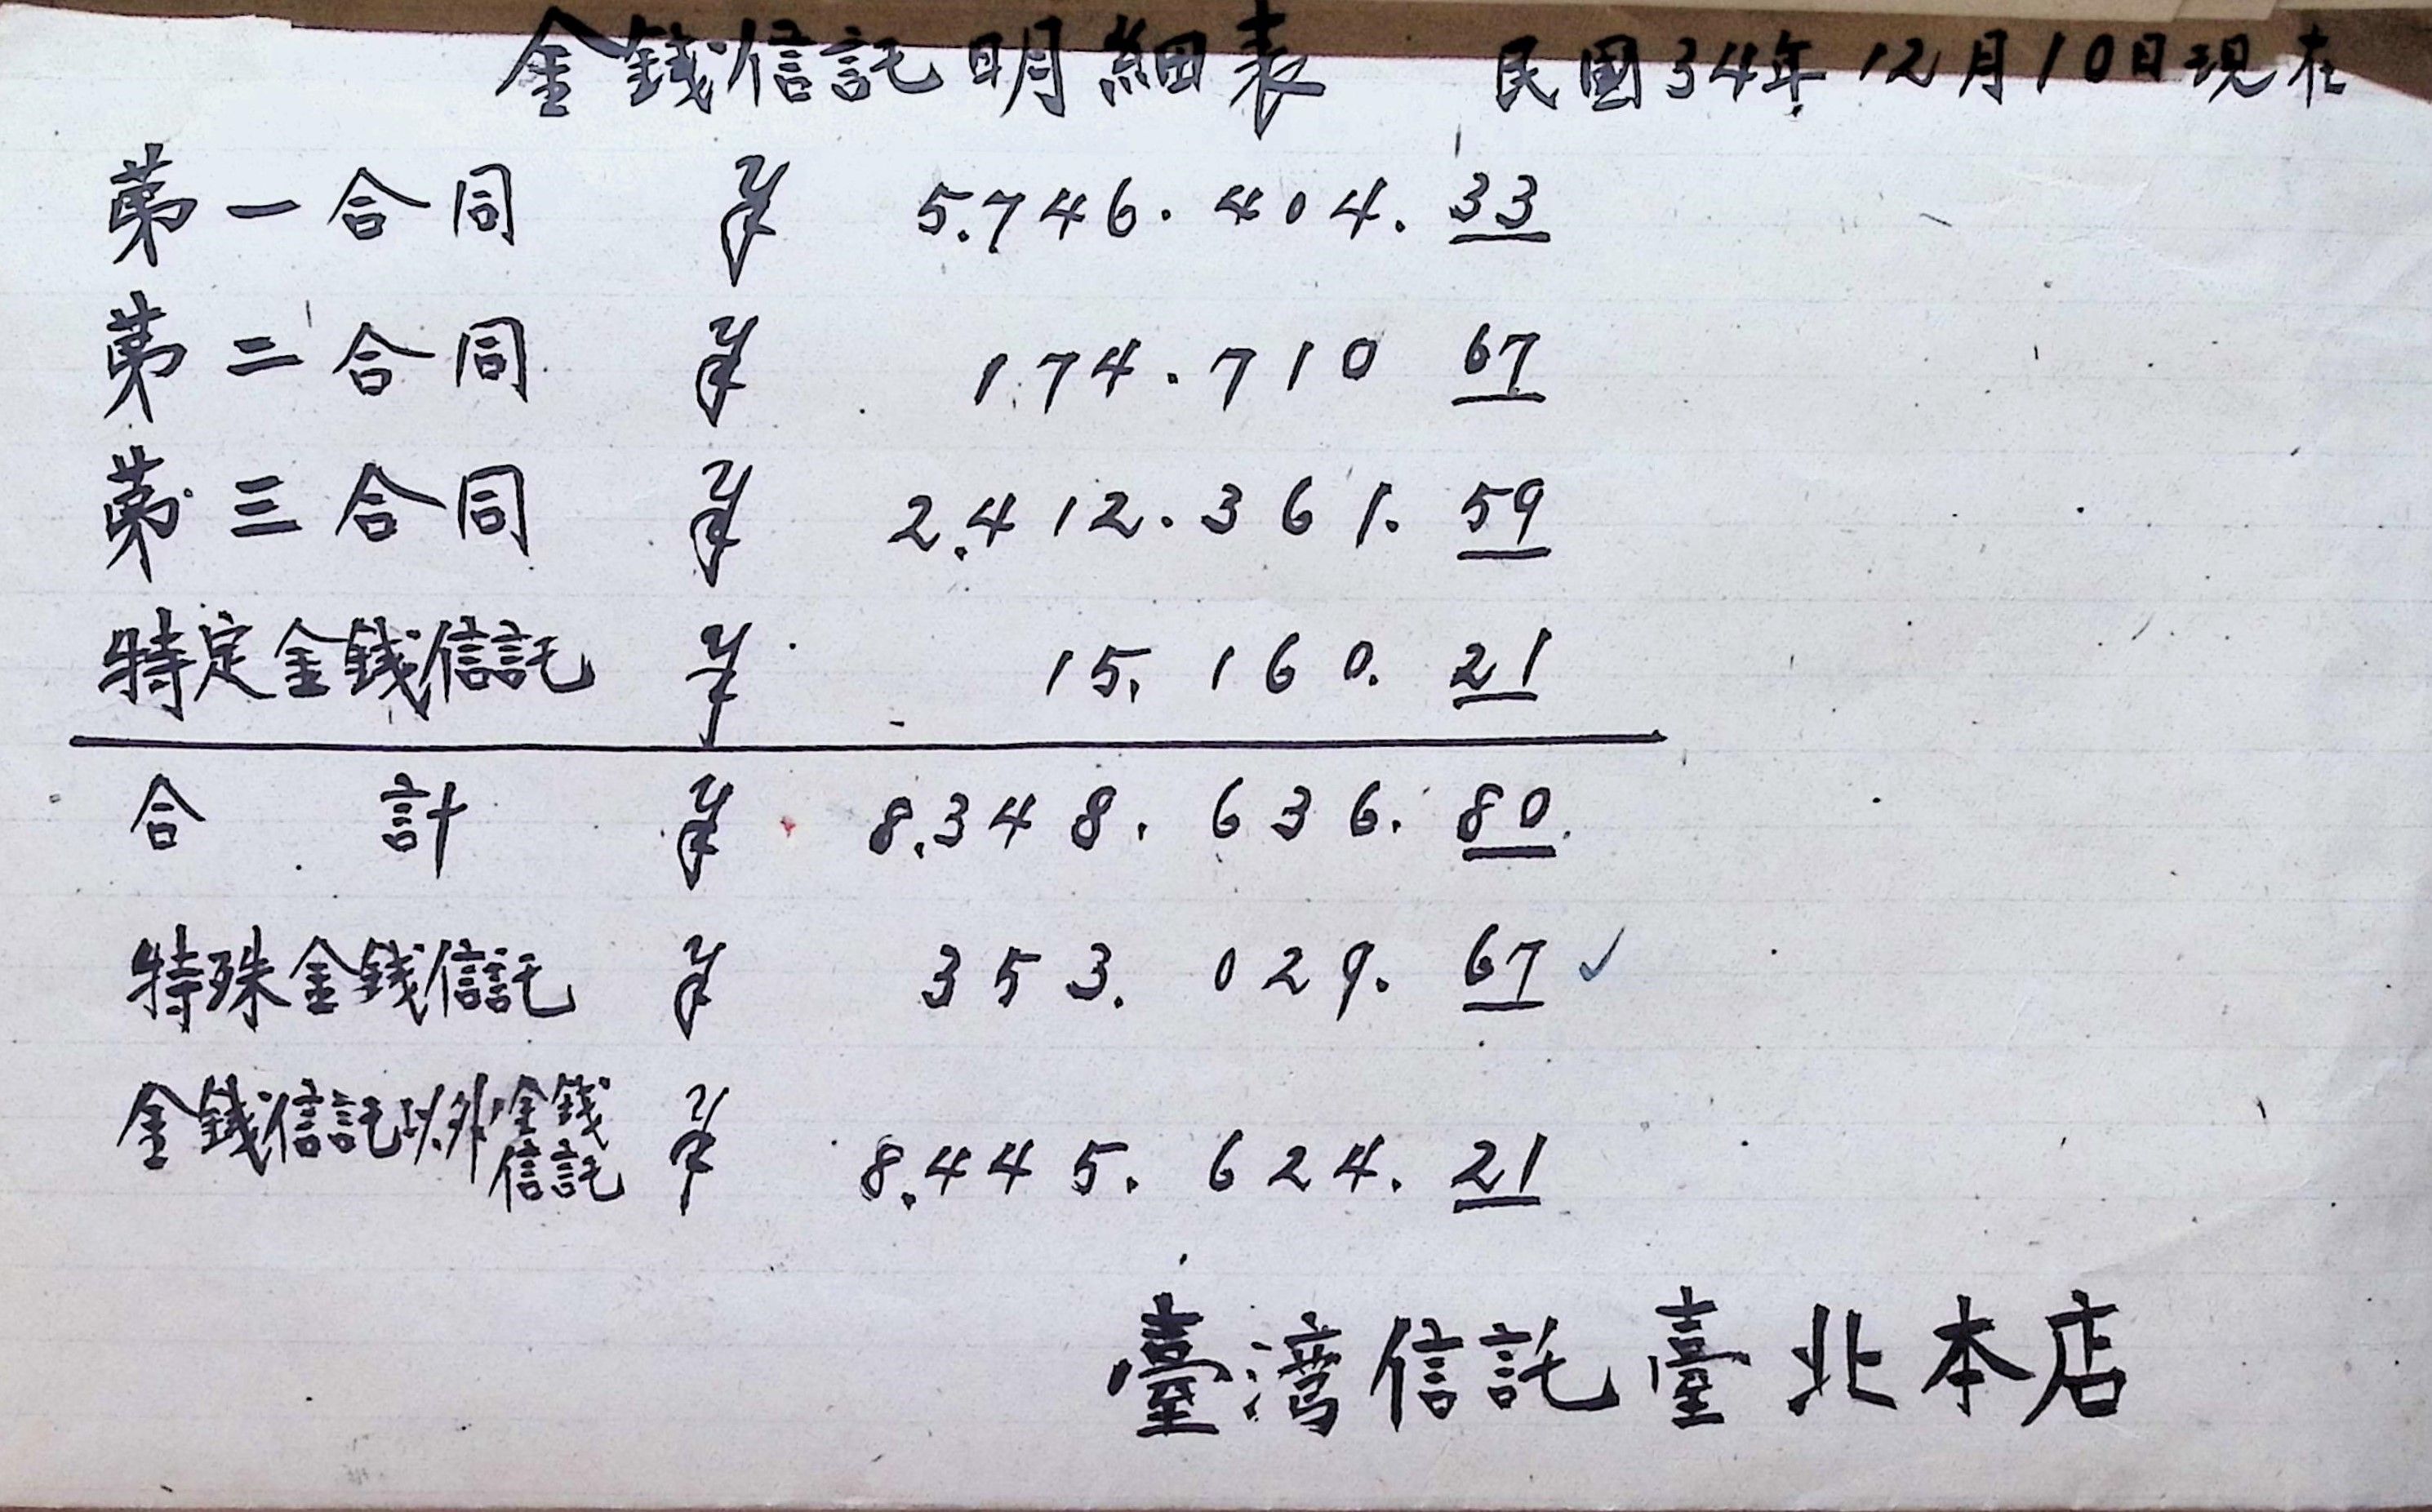 金錢信託明細表 民國34年12月10日現在
第一合同 ¥ 5.746.404.33
第二合同 ¥ 174.710 67
第三合同 ¥ 2.412.361.59
特定金錢信託 ¥ 15.160.21
合計 ¥ 8.348.636.80.
特殊金錢信託 ¥ 353.029.67 ✓
金錢信託以外金錢信託 ¥ 8.445.624.21
臺湾信託臺北本店